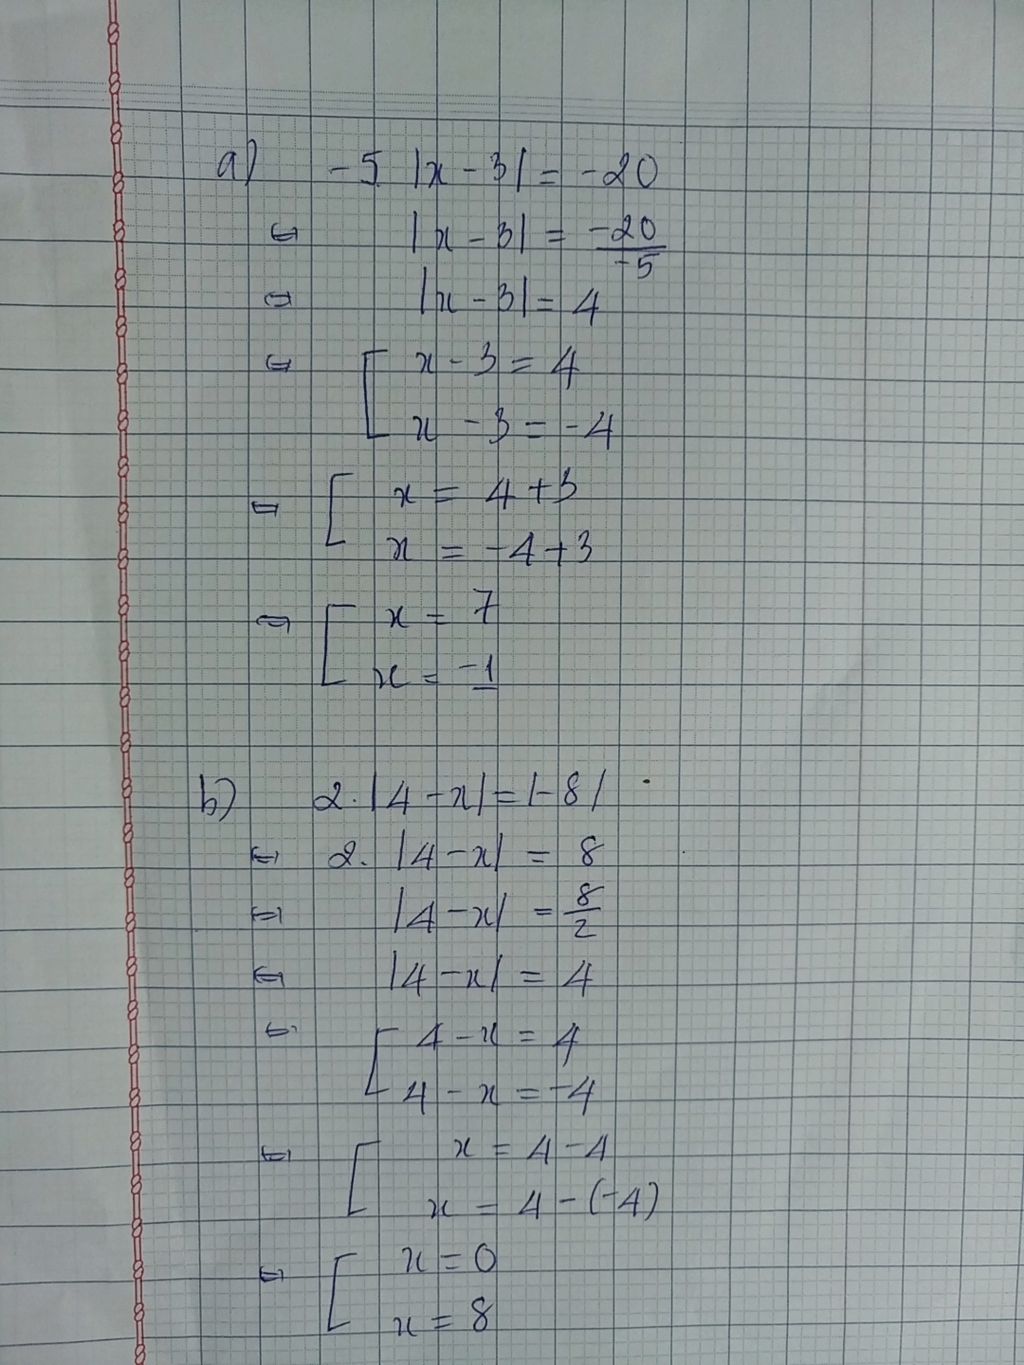 a) -5. |x - 3| = -20
⇔ |x - 3| = -20/-5
⇔ |x - 3| = 4
⇔ [ x - 3 = 4
x - 3 = -4
⇔ [ x = 4 + 3
x = -4 + 3
⇔ [ x = 7
x = -1
b) 2. |4 - x| = |-8|
⇔ 2. |4 - x| = 8
⇔ |4 - x| = 8/2
⇔ |4 - x| = 4
⇔ [ 4 - x = 4
4 - x = -4
⇔ [ x = 4 - 4
x = 4 - (-4)
⇔ [ x = 0
x = 8